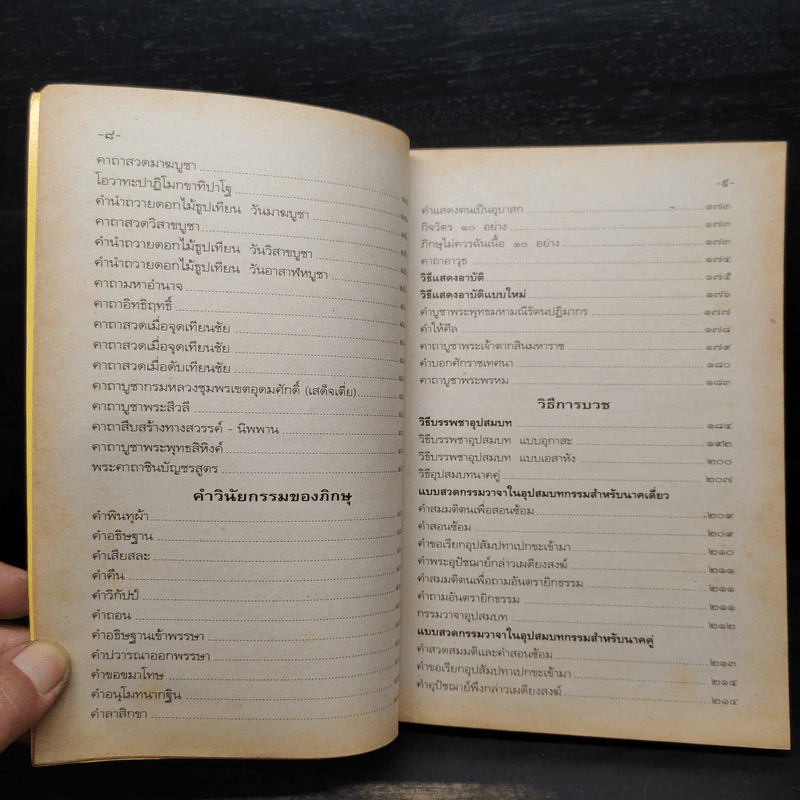 -๘-
คาถาสวดมาฆบูชา
โอวาทะปาฏิโมกขาทิปาโฐ
คำนำถวายดอกไม้ธูปเทียน วันมาฆบูชา
คาถาสวดวิสาขบูชา
คำนำถวายดอกไม้ธูปเทียน วันวิสาขบูชา
คำนำถวายดอกไม้ธูปเทียน วันอาสาฬหบูชา
คาถามหาอำนาจ
คาถาอิทธิฤทธิ์
คาถาสวดเมื่อจุดเทียนชัย
คาถาสวดเมื่อจุดเทียนชัย
คาถาสวดเมื่อดับเทียนชัย
คาถาบูชากรมหลวงชุมพรเขตอุดมศักดิ์ (เสด็จเตี่ย)
คาถาบูชาพระสีวลี
คาถาสืบสร้างทางสวรรค์ - นิพพาน
คาถาบูชาพระพุทธสิหิงค์
พระคาถาชินบัญชรสูตร
คำวินัยกรรมของภิกษุ
คำพินทุผ้า
คำอธิษฐาน
คำเสียสละ
คำคืน
คำวิกัปป์
คำถอน
คำอธิษฐานเข้าพรรษา
คำปวารณาออกพรรษา
คำขอขมาโทษ
คำอนุโมทนากฐิน
คำลาสิกขา
-๙-
คำแสดงตนเป็นอุบาสก ๑๗๓
กิจวัตร ๑๐ อย่าง ๑๗๓
ภิกษุไม่ควรฉันเนื้อ ๑๐ อย่าง ๑๗๓
คาถาอาวุธ ๑๗๔
วิธีแสดงอาบัติ ๑๗๕
วิธีแสดงอาบัติแบบใหม่ ๑๗๖
คำบูชาพระพุทธมหามณีรัตนปฏิมากร ๑๗๗
คำให้ศีล ๑๗๘
คาถาบูชาพระเจ้าตากสินมหาราช ๑๗๙
คำบอกศักราชเทศนา ๑๘๐
คาถาบูชาพระพรหม ๑๘๓
วิธีการบวช
วิธีบรรพชาอุปสมบท ๑๘๔
วิธีบรรพชาอุปสมบท แบบอุกาสะ ๑๙๒
วิธีบรรพชาอุปสมบท แบบเอสาหัง ๒๐๐
วิธีอุปสมบทนาคคู่ ๒๐๗
แบบสวดกรรมวาจาในอุปสมบทกรรมสำหรับนาคเดี่ยว
คำสมมติตนเพื่อสอนซ้อม ๒๐๙
คำสอนซ้อม ๒๐๙
คำขอเรียกอุปสัมปทาเปกขะเข้ามา ๒๑๐
คำพระอุปัชฌาย์กล่าวเผดียงสงฆ์ ๒๑๑
คำสมมติตนเพื่อถามอันตรายิกธรรม ๒๑๑
คำถามอันตรายิกธรรม ๒๑๑
กรรมวาจาอุปสมบท ๒๑๒
แบบสวดกรรมวาจาในอุปสมบทกรรมสำหรับนาคคู่
คำสวดสมมติและคำสอนซ้อม ๒๑๓
คำขอเรียกอุปสัมปทาเปกขะเข้ามา ๒๑๔
คำอุปัชฌาย์พึงกล่าวเผดียงสงฆ์ ๒๑๔